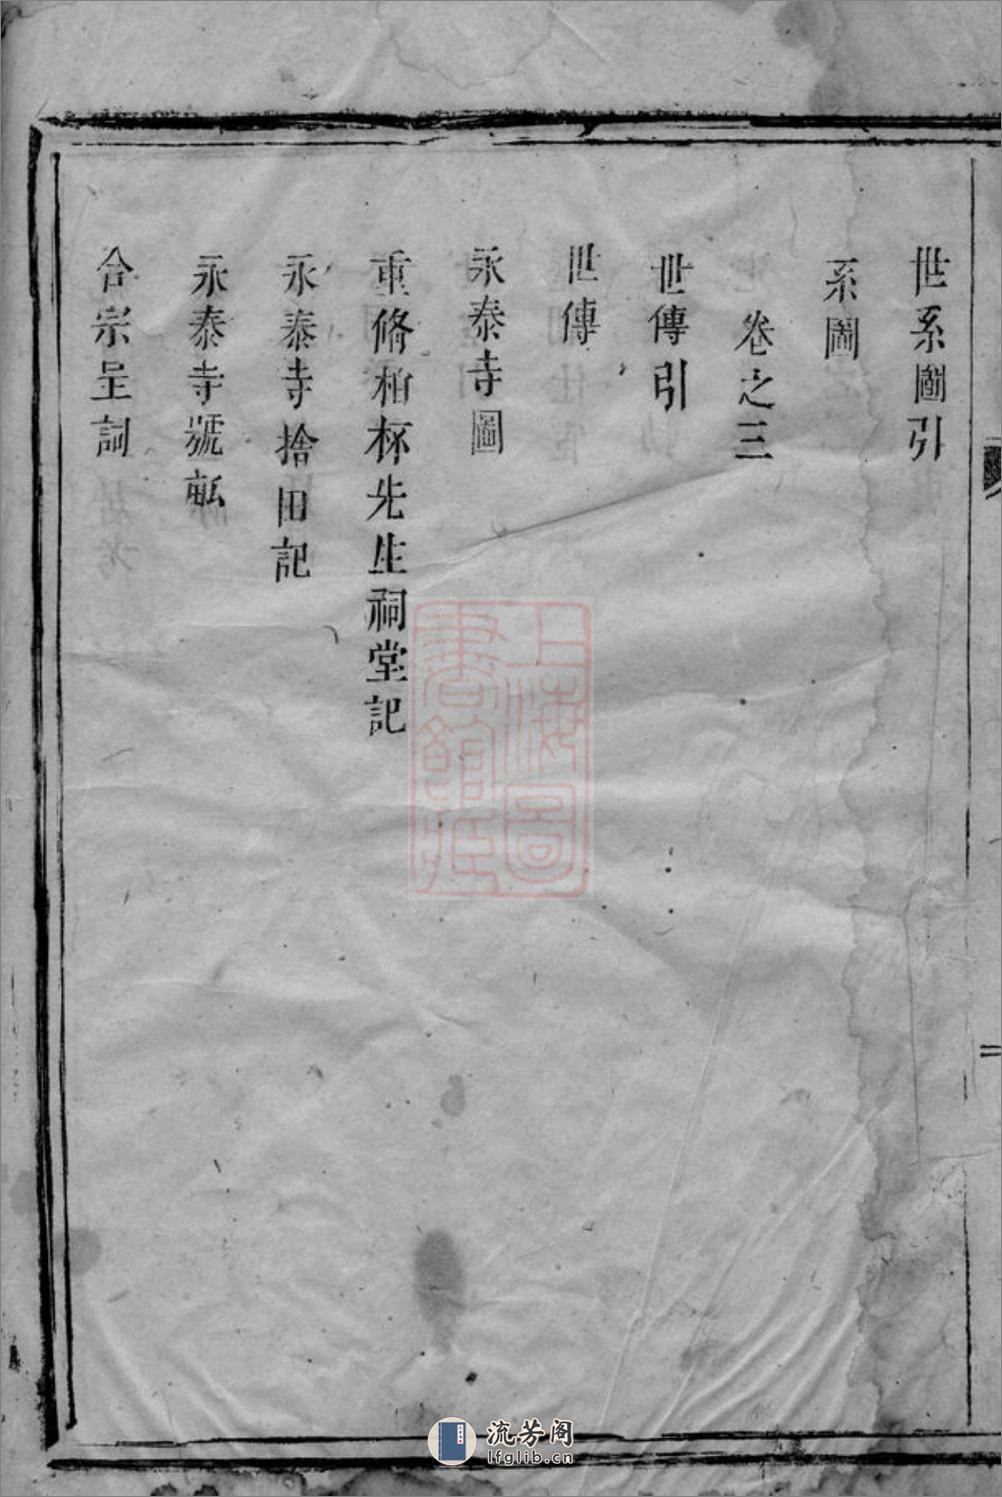 世系圖引
系圖
卷之三
世傳引
世傳
永泰寺圖
重脩柏林先生祠堂記
永泰寺捨田記
永泰寺號畝
合宗呈詞
上海圖書館藏
流芳阁
lfglib.cn